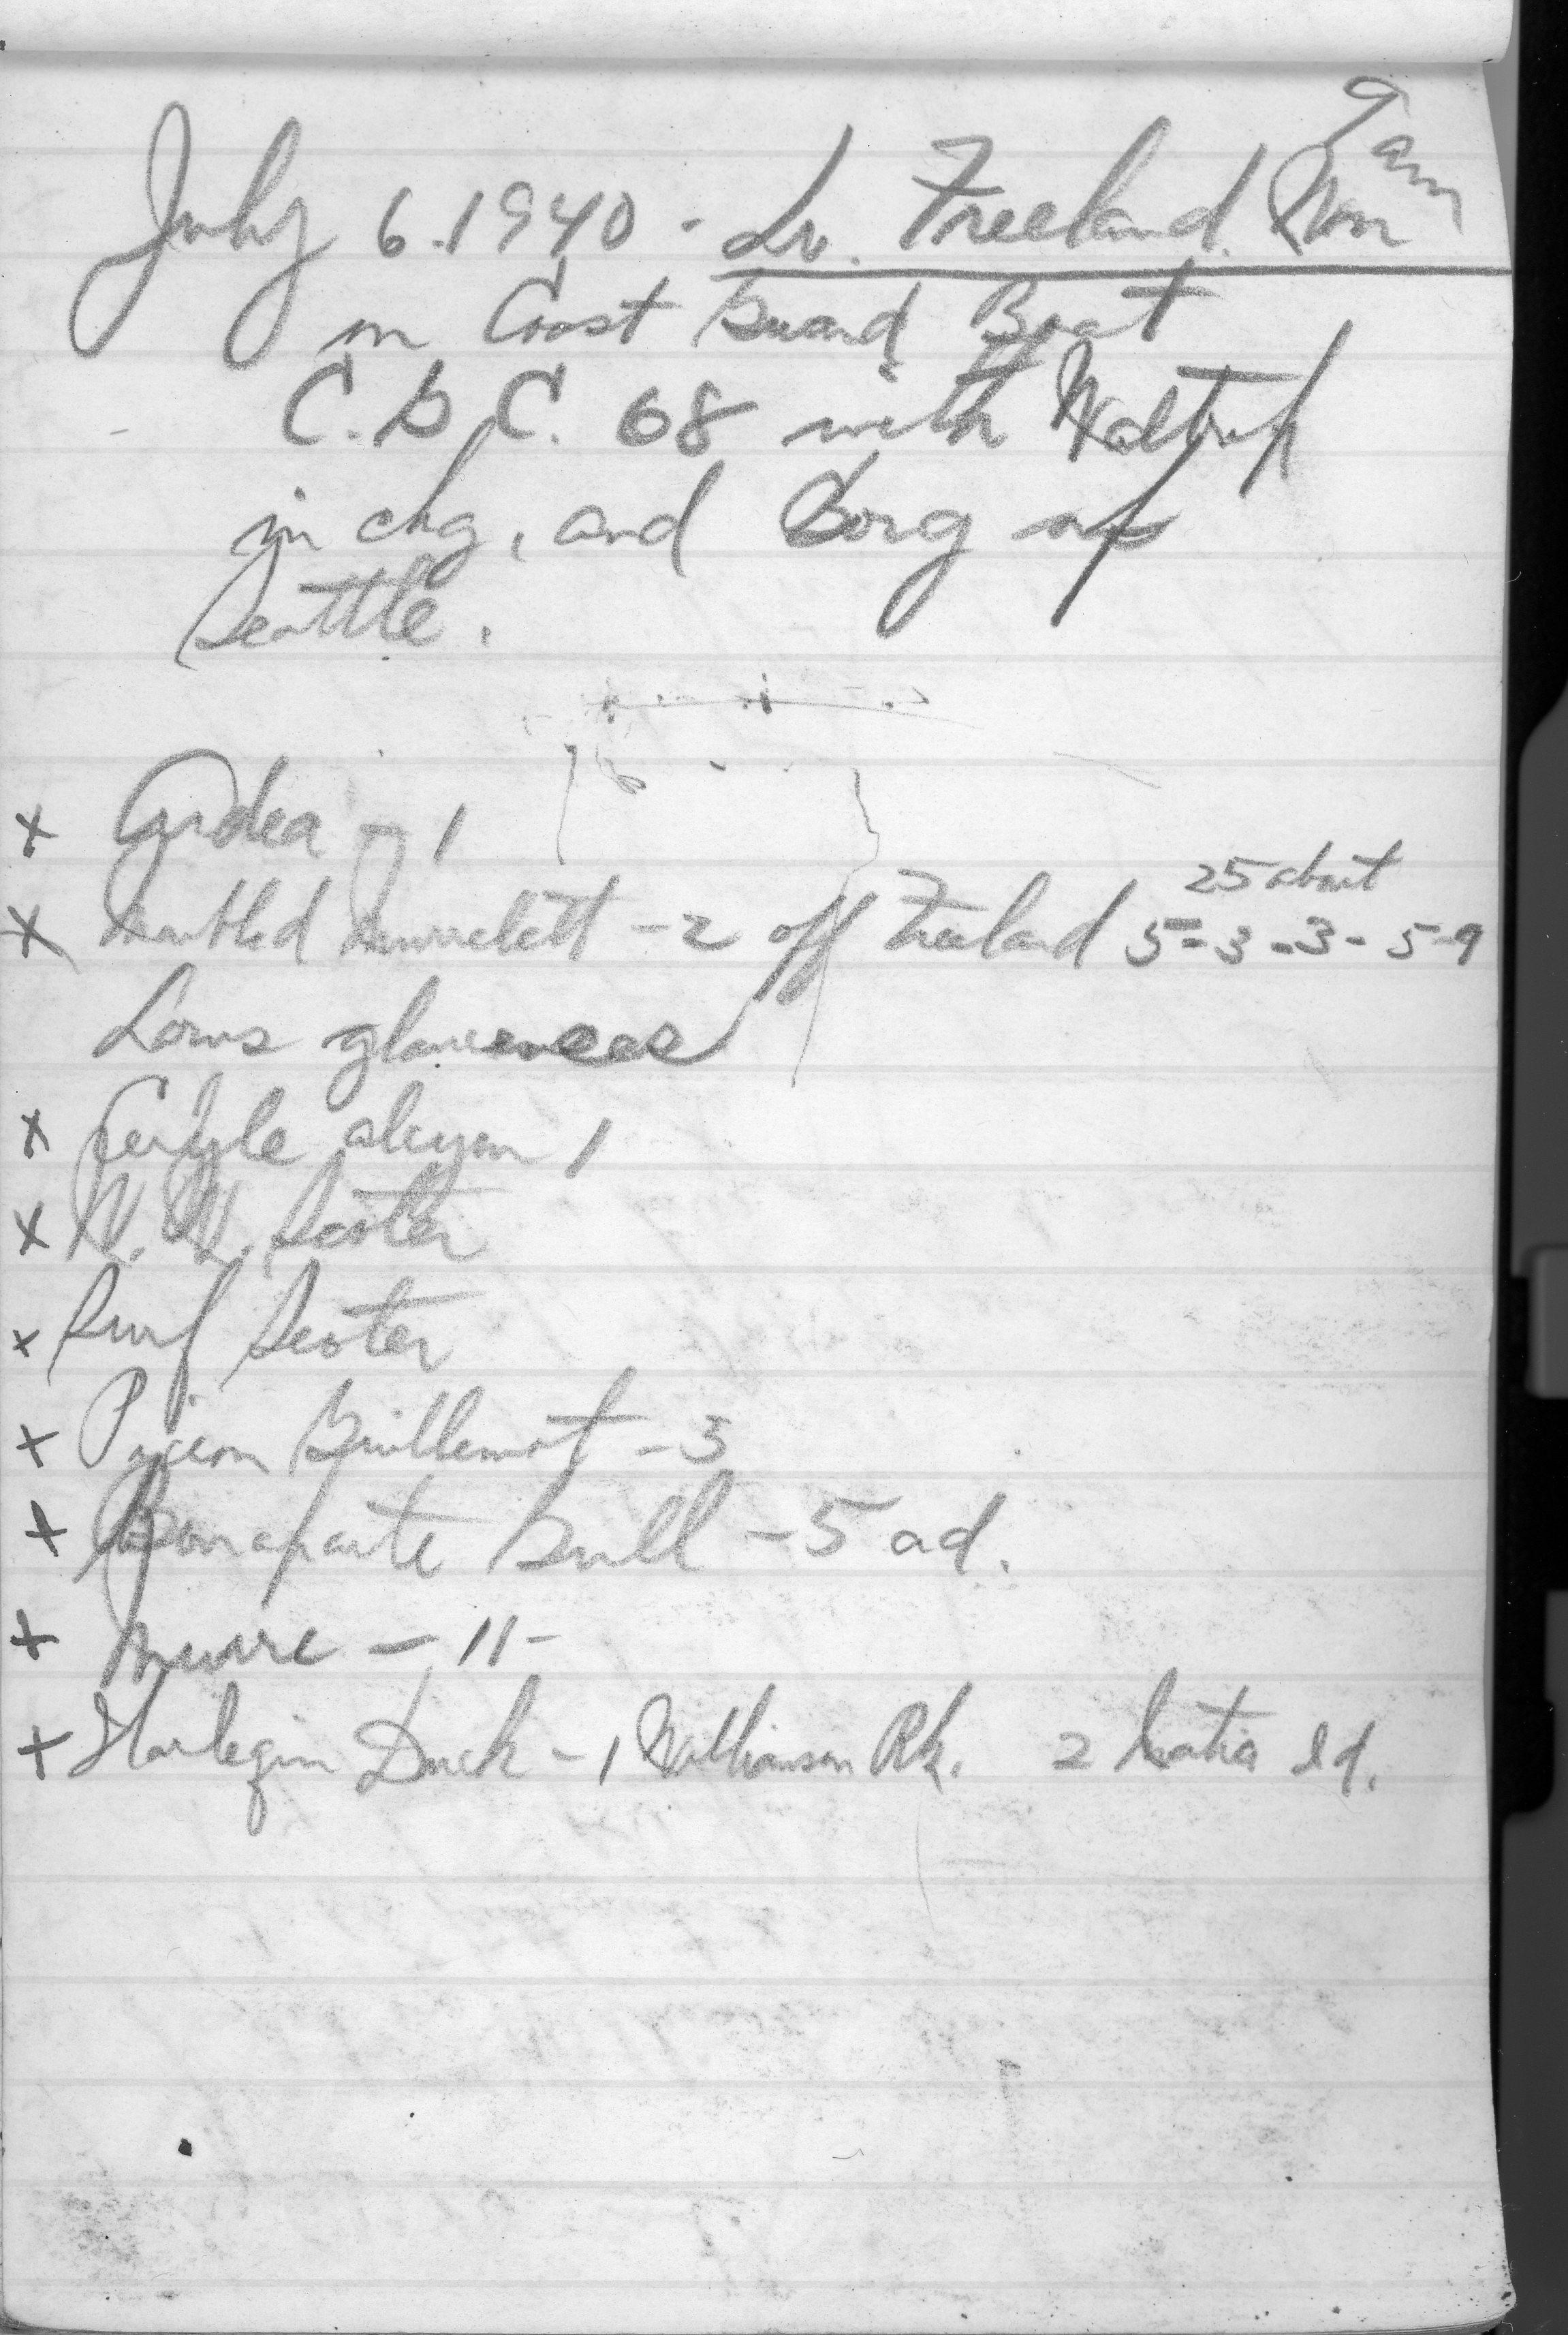 9 am
July 6.1940 - Lv. Freeland. Wn
in Coast Guard Boat
C.G.C. 68 with
in chg, and Borg of
Seattle.
x Ardea - 1
25 about
x Marbled Murrelett - 2 off Freeland 5-3-3-5-9
Larus glaucences
x Ceryle alcyon 1
x W. W. Scoter
x Surf Scoter
+ Pigeon Guillemot - 3
+ Bonaparte Gull - 5 ad.
+ Murre - 11 -
+ Harleqin Duck - 1 Williamson Rk. 2 Matia Id.